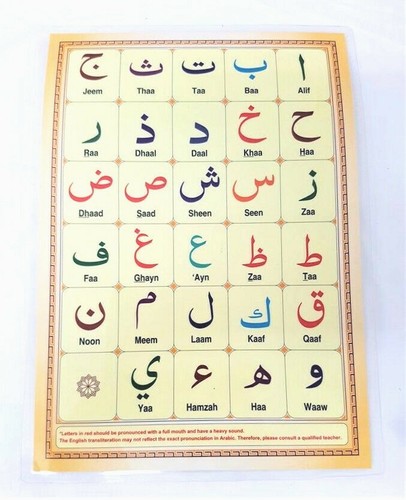 ا ب ت ث ج
Alif Baa Taa Thaa Jeem
ح خ د ذ ر
Haa Khaa Daal Dhaal Raa
ز س ش ص ض
Zaa Seen Sheen Saad Dhaad
ط ظ ع غ ف
Taa Zaa 'Ayn Ghayn Faa
ق ك ل م ن
Qaaf Kaaf Laam Meem Noon
و ه ء ي
Waaw Haa Hamzah Yaa
*Letters in red should be pronounced with a full mouth and have a heavy sound.
The English transliteration may not reflect the exact pronunciation in Arabic. Therefore, please consult a qualified teacher.